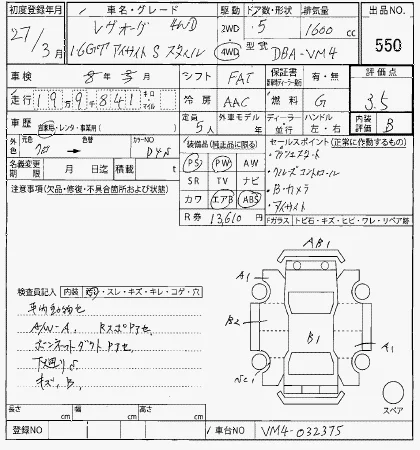 初度登録年月 車名・グレード 駆動 ドア数・形状 排気量 出品NO.
27/3月 レヴォーグ 4WD 2WD 5 1600 cc
1.6GT アイサイト S スタイル 4WD 型式 DBA-VM4 550
車検 8年3月 シフト FAT 保証書 有・無 評価点
走行 19万9千841 キロ マイル 冷房 AAC 燃料 G 3.5
車歴 自家用・レンタ・事業用( ) 定員 5人 外車モデル 年 ディーラー 並行 ハンドル 左・右 内装評価 B
外色 元色 クロ 色替 カラーNO D4S
装備品(純正品に限る) セールスポイント(正常に作動するもの)
名義変更期限 月 日迄 積載 t
PS PW AW
SR TV ナビ
カワ エアB ABS
R券 13,610円
・クルーズコントロール
・B.カメラ
・アイサイト
注意事項(欠品・修復・不具合箇所および状態)
Fガラス トビ石・キズ・ヒビ・ワレ・リペア跡
AB1
A1
B2
B1
A1
検査員記入 内装 ・スレ・キズ・キレ・コゲ・穴
A/W-A. RスポPアセ
ボンネットダクトPアセ
下廻りS
キズ、B.
スペア
長さ cm 幅 cm 高さ cm
登録NO 車台NO VM4-032375